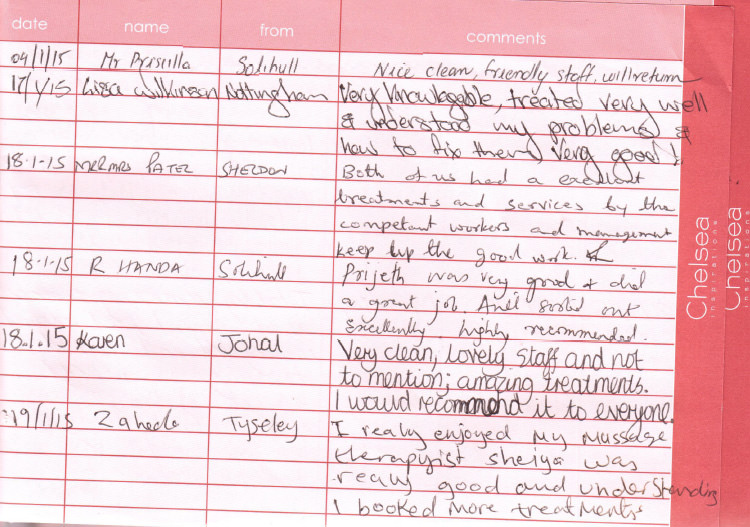 date name from comments
04/1/15 Mr Priscilla Solihull Nice clean, friendly staff, will return
17/1/15 Lissa Wilkinson Nottingham Very knowlagable, treated very well
& understood my problems &
how to fix them. Very good!
18-1-15 MR MRS PATEL SHELDON Both of us had a excellent
treatments and services by the
competant workers and management
keep up the good work.
18-1-15 R HANDA Solihull Prijeth was very good & did
a great job. And sorted out
excellently highly recommended.
18.1.15 Karen Johal Very clean, lovely staff and not
to mention; amazing treatments.
I would recommend it to everyone.
19/1/15 Zaheda Tyseley I realy enjoyed my mussage
therapyist sheiya was
realy good and understanding
I booked more treatments
Chelsea
inspirations
Chelsea
inspirations